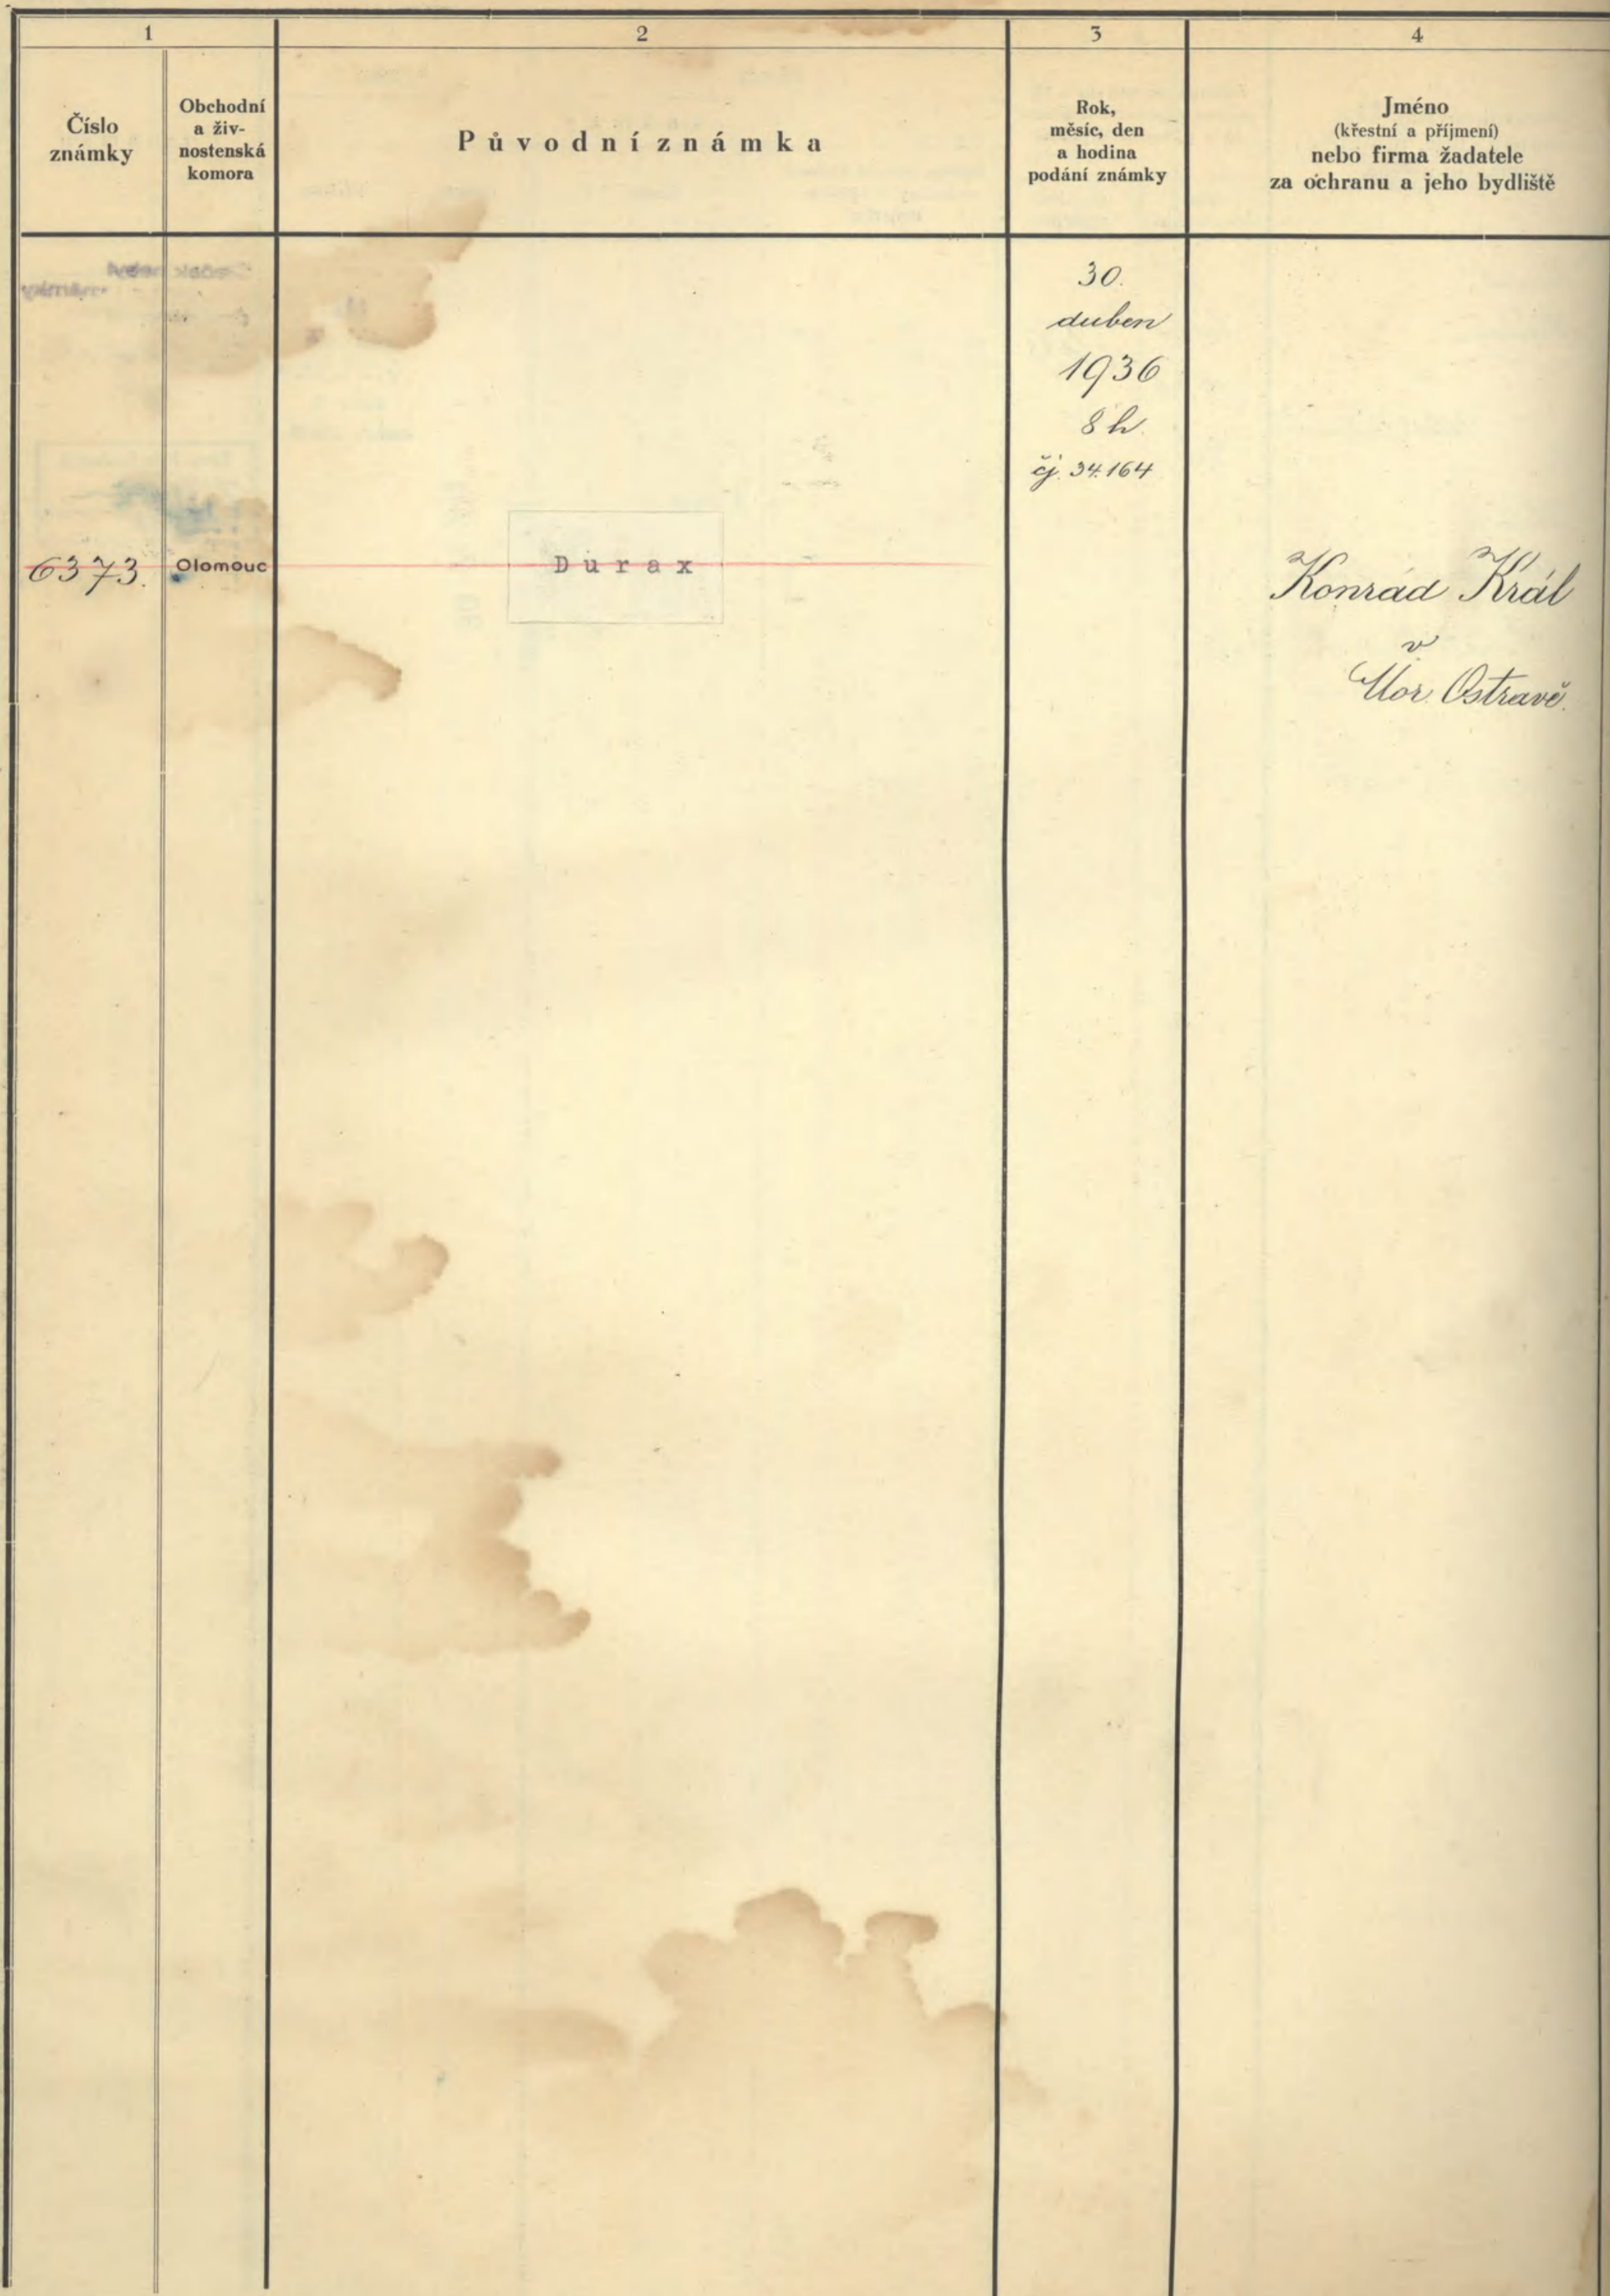 1
2
3
4
Číslo
známky
Obchodní
a živ-
nostenská
komora
Původní známka
Rok,
měsíc, den
a hodina
podání známky
Jméno
(křestní a příjmení)
nebo firma žadatele
za ochranu a jeho bydliště
30.
duben
1936
8 h.
čj. 34.164
6373.
Olomouc
Durax
Konrád Král
v
Mor. Ostravě.